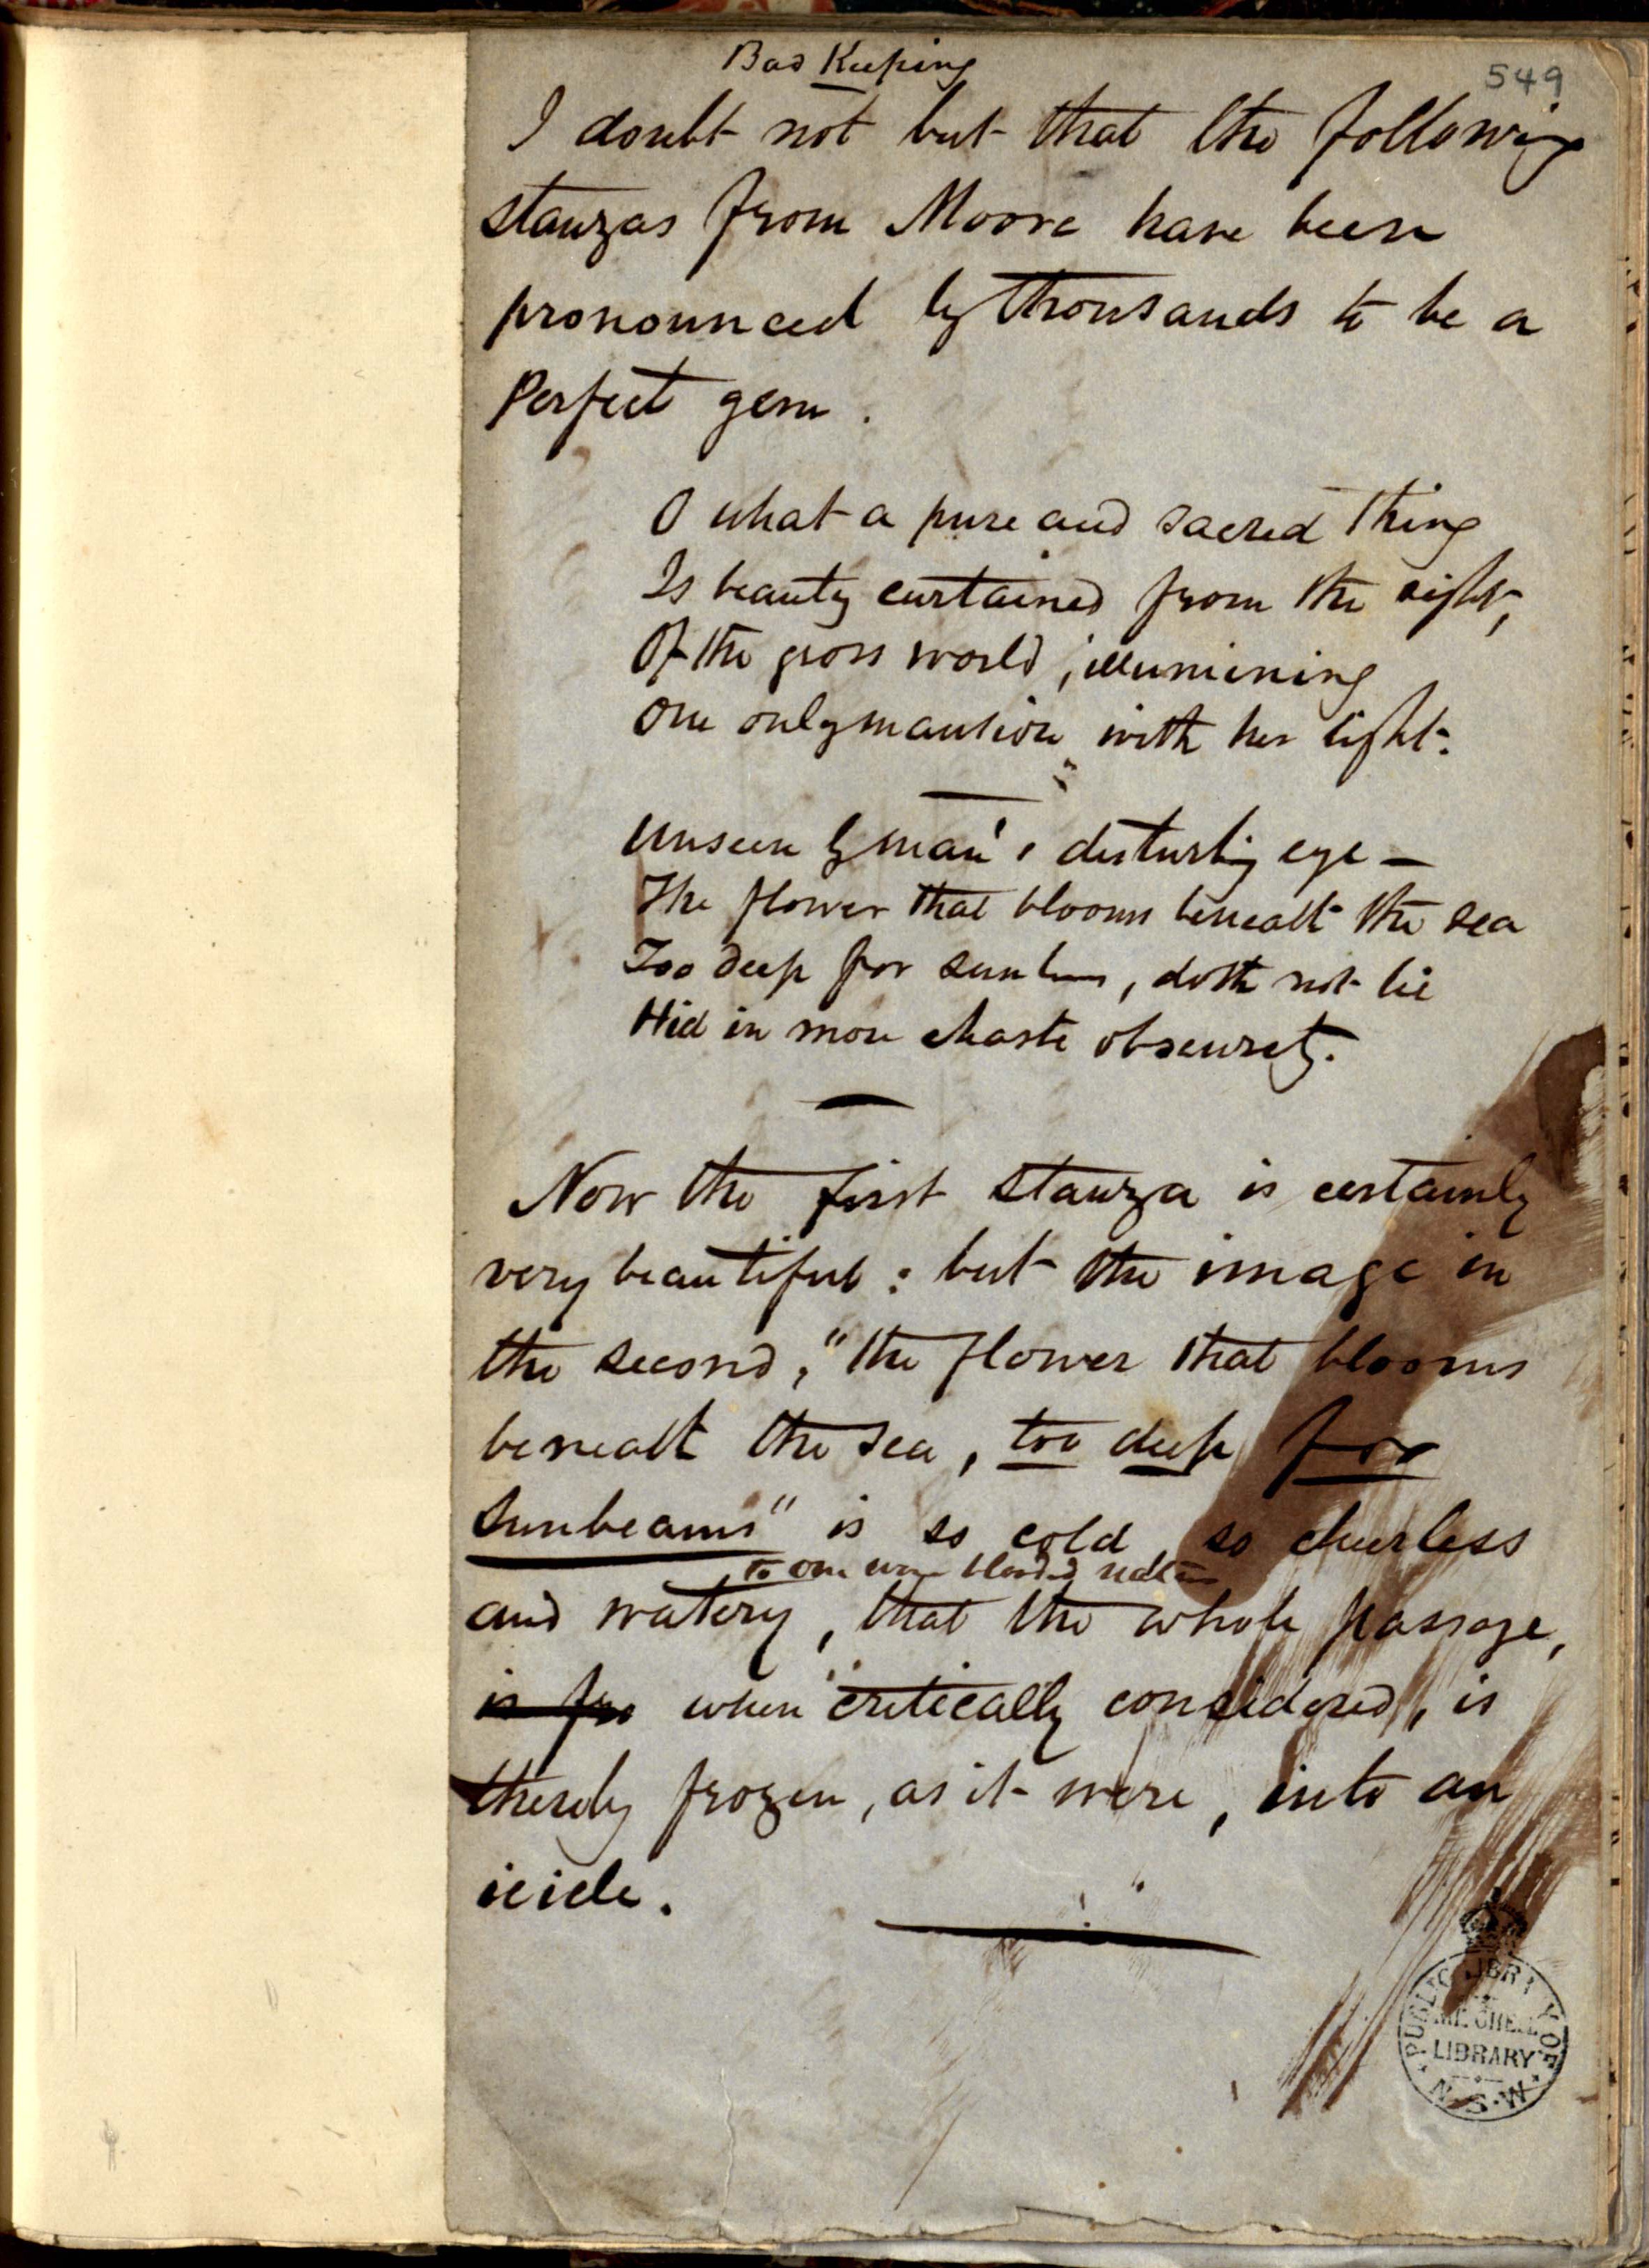 Bad Keeping
549
I doubt not but that the following
stanzas from Moore have been
pronounced by thousands to be a
Perfect gem.
O what a pure and sacred thing
Is beauty curtained from the sight,
Of the gross world, illumining
One only mansion with her light.
Unseen by man's disturbing eye —
The flower that blooms beneath the sea
Too deep for sunbeams, doth not lie
Hid in more chaste obscurity.
Now the first stanza is certainly
very beautiful: but the image in
the second, "the flower that blooms
beneath the sea, too deep for
sunbeams" is so cold, so cheerless
to one warm blooded nation
and watery, that the whole passage,
is fro when critically considered, is
thereby frozen, as it were, into an
icicle.
PUBLIC LIBRARY OF
MITCHELL
LIBRARY
N.S.W.